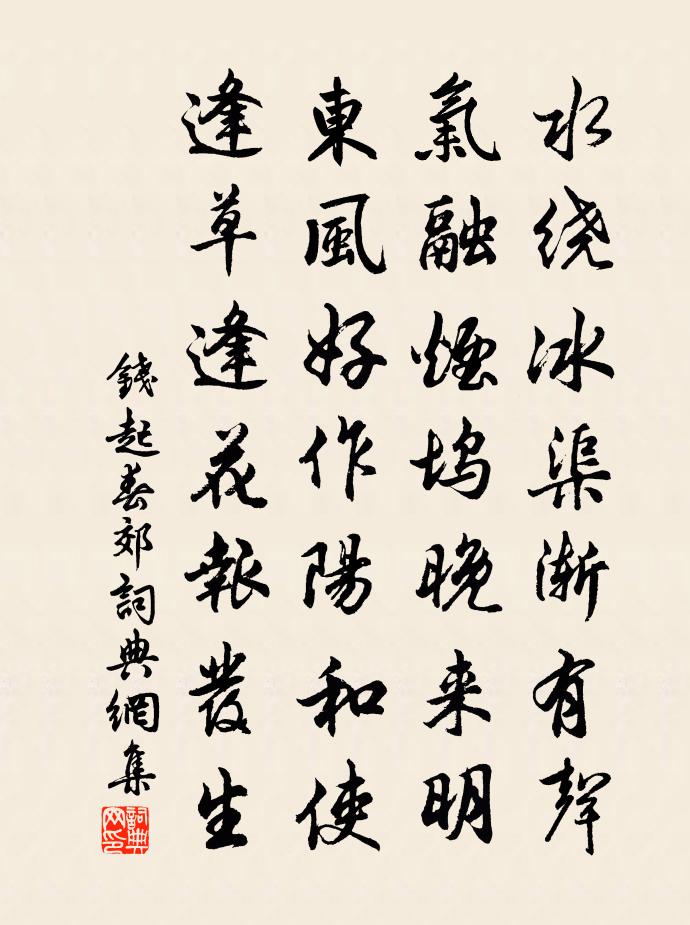 水绕冰渠渐有聲
氣融煙坞晚来明
東風好作陽和使
逢草逢花報發生
錢起春郊詞典網集
詞典网印